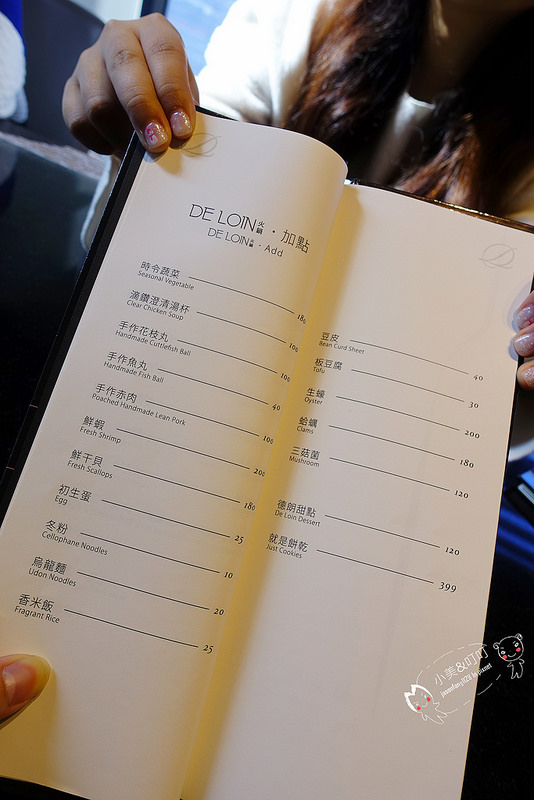 DE LOIN火鍋・加點
DE LOIN火鍋・Add
時令蔬菜 180
Seasonal Vegetable
滴鑽澄清湯杯 100
Clear Chicken Soup
手作花枝丸 100
Handmade Cuttlefish Ball
手作魚丸 40
Handmade Fish Ball
手作赤肉 100
Poached Handmade Lean Pork
鮮蝦 200
Fresh Shrimp
鮮干貝 180
Fresh Scallops
初生蛋 25
Egg
冬粉 10
Cellophane Noodles
烏龍麵 20
Udon Noodles
香米飯 25
Fragrant Rice
豆皮 40
Bean Curd Sheet
板豆腐 30
Tofu
生蠔 200
Oyster
蛤蠣 180
Clams
三菇菌 120
Mushroom
德朗甜點 120
De Loin Dessert
就是餅乾 399
Just Cookies
小美&叮叮